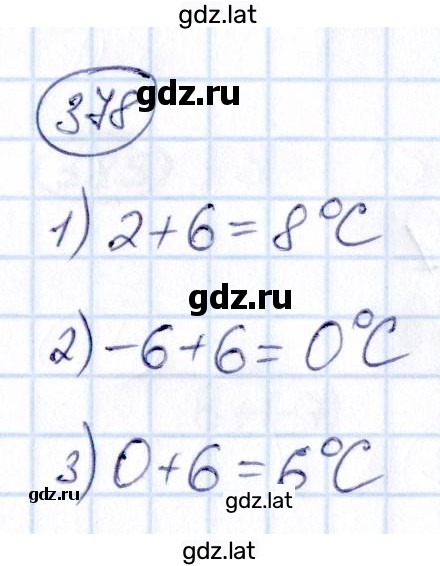 gdz.lat
378
gdz.lat
1) 2+6=8°C
gdz.lat
2) -6+6=0°C
3) 0+6=6°C
gdz.lat
gdz.lat
gdz.lat